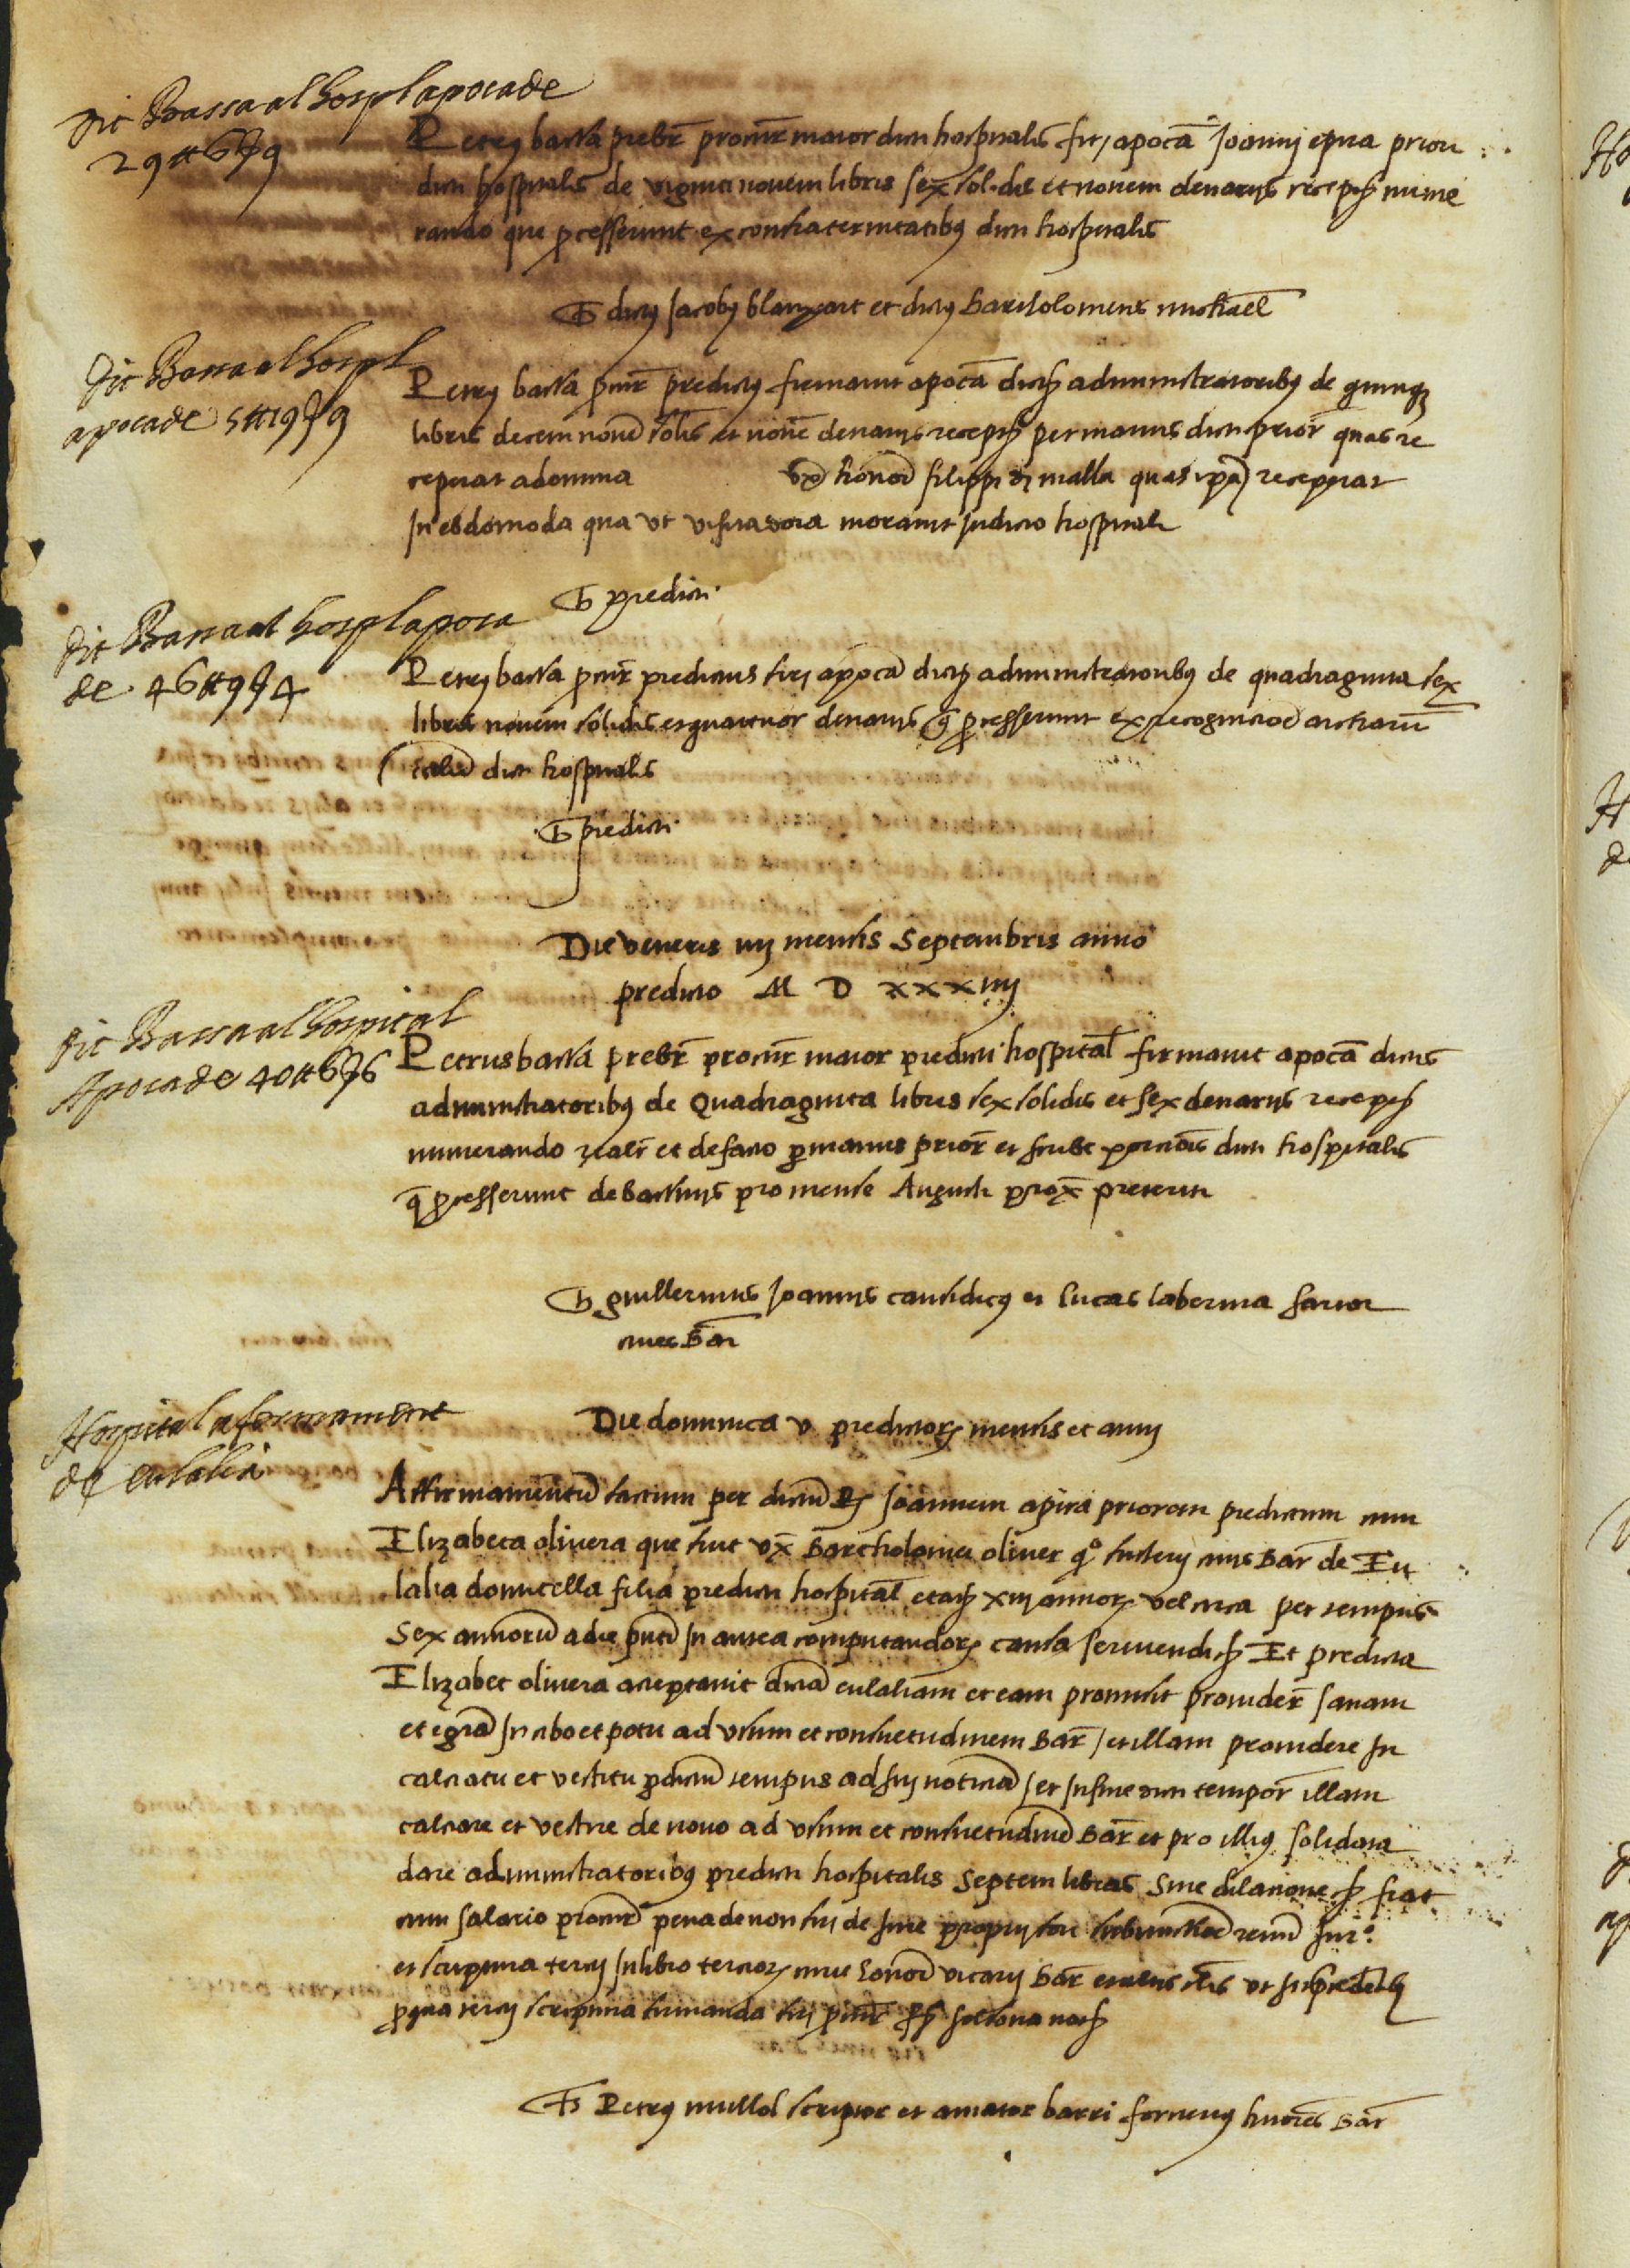 dit Bassa al hospl apoca de
29 ℔ 6 ß 9
Petrus bassa prebr procur maior dicti hospitalis fir apoca Joanni epila priori
dicti hospitalis de viginti novem libris sex solidis et novem denarijs receptis nume
rando que processerunt ex confraternitatibus dicti hospitalis
Ts dictus Jacobus blanxart et dictus Bartholomeus michael
dit Bassa al hospl
apoca de 5 ℔ 19 ß 9
Petrus bassa procur predictus firmavit apoca dictis administratoribus de quinque
libris decem novem solis et novem denarijs receptis per manus dicti prior quas re
ceperat a domina uxor honor filippi de malla quas ipsa receperat
In ebdomoda qua ut visitadora moravit In dicto hospitali
Ts predicti
dit Bassa al hospl apoca
de 46 ℔ 9 ß 4
Petrus bassa procur predictus fir apoca dictis administratoribus de quadraginta sex
libris novem solidis et quatuor denarijs que processerunt ex recognitione archarum
dicti hospitalis
Ts predicti
Die veneris iiij mensis Septembris anno
predicto M D xxxiiij
dit Bassa al hospital
Apoca de 40 ℔ 6 ß 6
Petrus bassa prebr procur maior predicti hospital firmavit apoca dictis
administratoribus de Quadraginta libris sex solidis et sex denarijs receptis
numerando realr et de facto per manus prior et scribe dicti hospitalis
que processerunt de bassinis pro mense Augusti prox preteriti
Ts guillermus Joannis causidicus et lucas saborina sartor
cives Bar
Hospital afermament
de eulalia
Die dominica v predictorum mensis et anni
Affirmamentum factum per dictum Joannem apira priorem predictum cum
Elizabeta olivera que fuit ux Bartholomei oliver qo civis Bar de Eu
lalia domicella filia predicti hospital etatis xiij annorum vel circa per tempus
Sex annorum a die presenti In antea computandorum causa serviendi etc Et predicta
Elizabet olivera acceptavit dictam eulaliam et eam promisit provider sanam
et egram In cibo et potu ad usum et consuetudinem Bar et illam providere In
calciatu et vestitu per dictum tempus ad sui noticiam et In fine dicti tempor illam
calciare et vestire de novo ad usum et consuetudinem Bar et pro illius solidata
dare administratoribus predicti hospitalis Septem libras Sine dilacione etc fiat
cum salario procur pena de non fir de Jure proprij fori submissione renun Jur
et scriptura tercij In libro terciorum curie honor vicarij Bar ut In precedentibus
pro qua tercij scriptura firmanda fir procur
Ts Petrus mullol scriptor et amator barri fornerius Bar